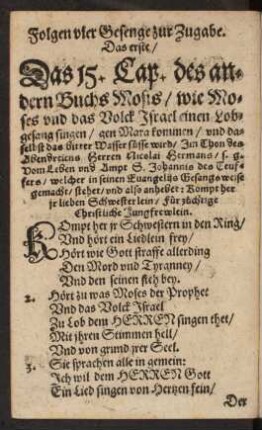 Folgen vier Gesenge zur Zugabe.
Das erste/
Das 15. Cap. des an-
dern Buchs Mosis/ wie Mo-
ses vnd das Volck Israel einen Lob-
gesang singen/ gen Mara kommen/ vnd da-
selbst das bitter Wasser süsse wird/ Im Thon des
Abendreiens Herren Nicolai Hermans/ s. g.
Vom Leben vnd Ampt S. Johannis des Teuf-
fers/ welcher in seinen Euangelijs Gesangsweise
gemacht/ stehet/ vnd also anhebet: Kompt her
jr lieben Schwesterlein/ Für züchtige
Christliche Jungfrewlein.
KOmpt her jr Schwestern in den Ring/
Vnd hört ein Liedlein frey/
Hört wie Gott straffe allerding
Den Mord vnd Tyranney/
Vnd den seinen steh bey.
2. Hört zu was Moses der Prophet
Vnd das Volck Israel
Zu Lob dem HERREN singen thet/
Mit jhren Stimmen hell/
Vnd von grund jrer Seel.
3. Sie sprachen alle in gemein:
Ich wil dem HERREN Gott
Ein Lied singen von Hertzen fein/
Der